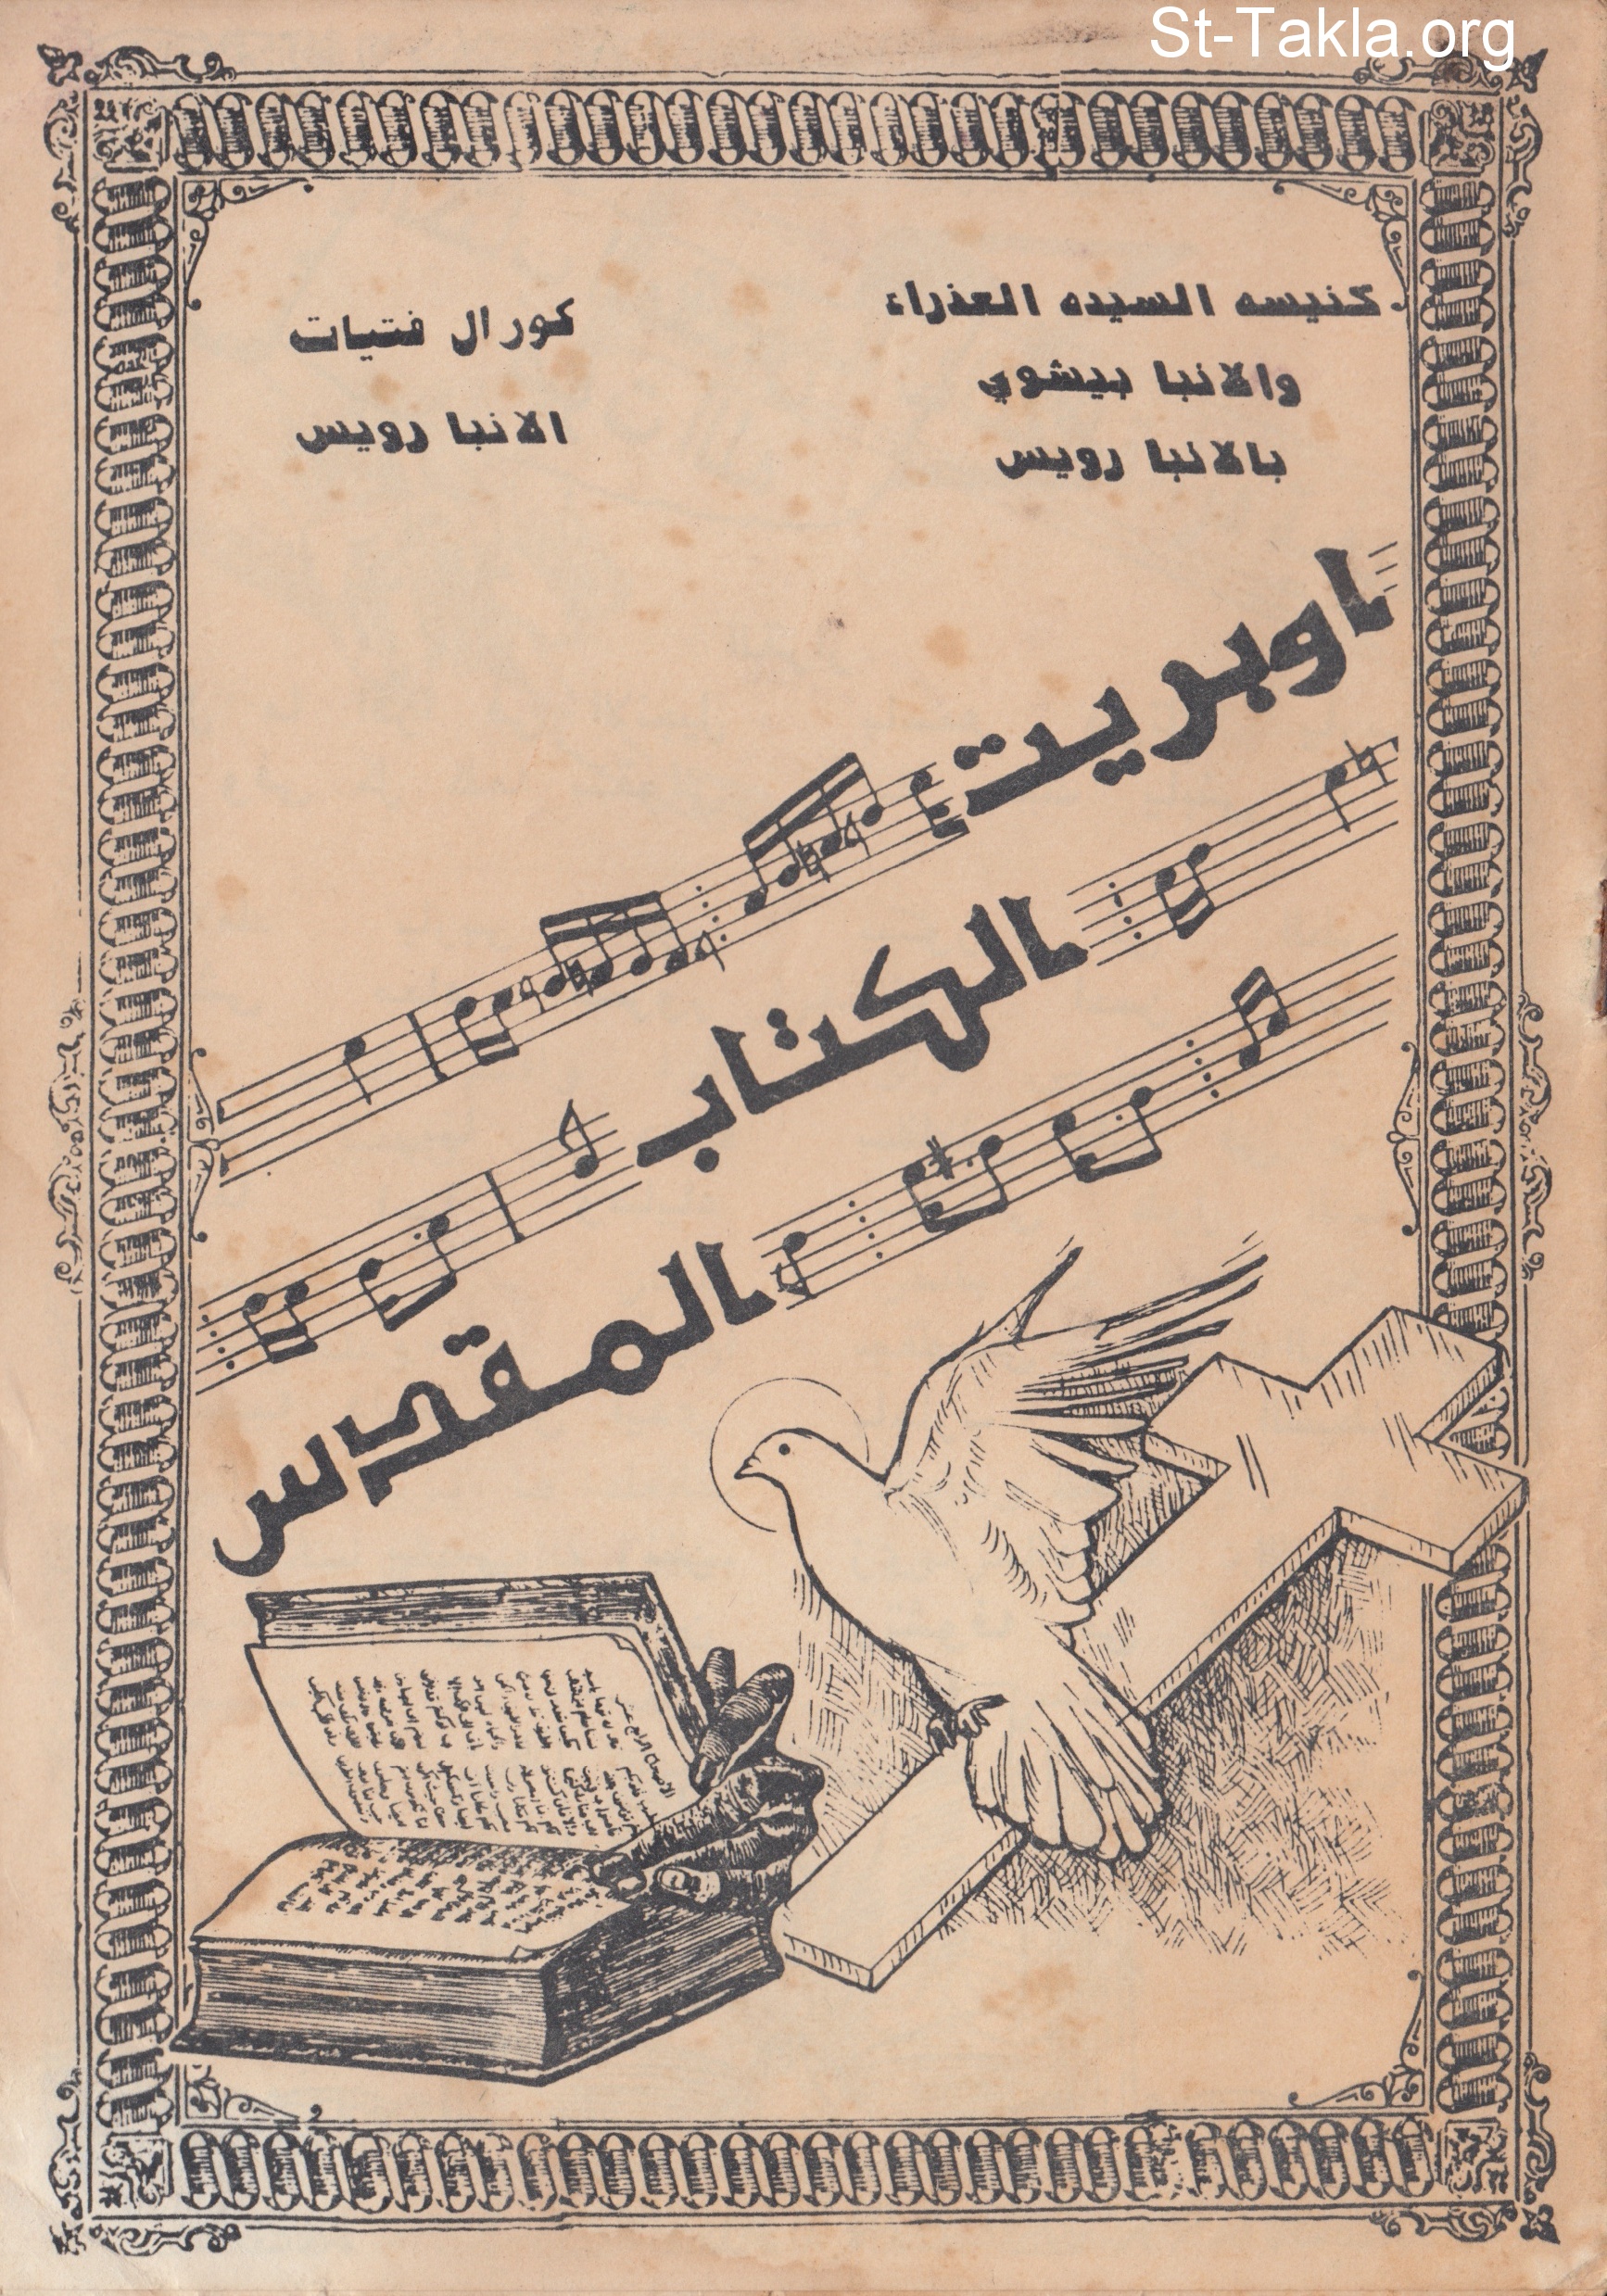 St-Takla.org
كنيسه السيده العذراء
والانبا بيشوي
بالانبا رويس
كورال فتيات
الانبا رويس
اوبريت
الكتاب
المقدس